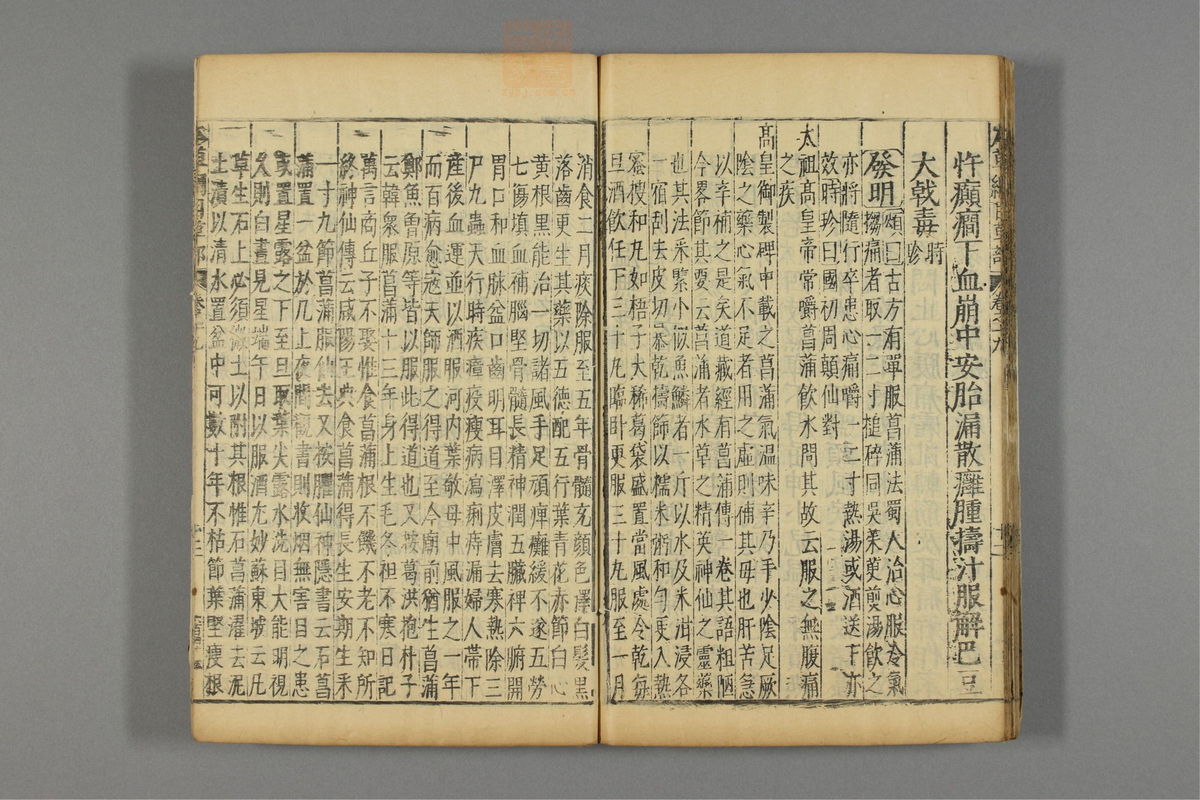 忤癲癇下血崩中安胎漏散癰腫擣汁服解巴豆
大戟毒時珍
發明頌曰古方有單服菖蒲法蜀人治心腹冷氣
搊痛者取一二寸搥碎同吳茱萸煎湯飲之
亦將隨行卒患心痛嚼一二寸熱湯或酒送下亦
效時珍曰國初周顛仙對
太祖高皇帝常嚼菖蒲飲水問其故云服之無腹痛
之疾
高皇御製碑中載之菖蒲氣溫味辛乃手少陰足厥
陰之藥心氣不足者用之虛則補其母也肝苦急
以辛補之是矣道藏經有菖蒲傳一卷其語粗陋
今畧節其要云菖蒲者水草之精英神仙之靈藥
也其法采緊小似魚鱗者一斤以水及米泔浸各
一宿刮去皮切暴乾擣篩以糯米粥和勻更入熟
蜜搜和丸如梧子大稀葛袋盛置當風處令乾每
旦酒飲任下三十丸臨卧更服三十丸服至一月
消食二月痰除服至五年骨髓充顏色澤白髮黑
落齒更生其藥以五德配五行葉青花赤節白心
黃根黑能治一切諸風手足頑痺癱緩不遂五勞
七傷填血補腦堅骨髓長精神潤五臟裨六腑開
胃口和血脉益口齒明耳目澤皮膚去寒熱除三
尸九蟲天行時疾瘴疫瘦病瀉痢痔漏婦人帶下
產後血運並以酒服河內葉敬母中風服之一年
而百病愈寇天師服之得道至今廟前猶生菖蒲
鄭魚曾原等皆以服此得道也又按葛洪抱朴子
云韓衆服菖蒲十三年身上生毛冬袒不寒日記
萬言商丘子不娶惟食菖蒲根不饑不老不知所
終神仙傳云咸陽王典食菖蒲得長生安期生采
一寸九節菖蒲服仙去又按臞仙神隱書云石菖
蒲置一盆於几上夜間觀書則收烟無害目之患
或置星露之下至旦取葉尖露水洗目大能明視
久則白晝見星端午日以酒服尤妙蘇東坡云凡
草生石上必須微土以附其根惟石菖蒲濯去泥
土漬以清水置盆中可數十年不枯節葉堅瘦根